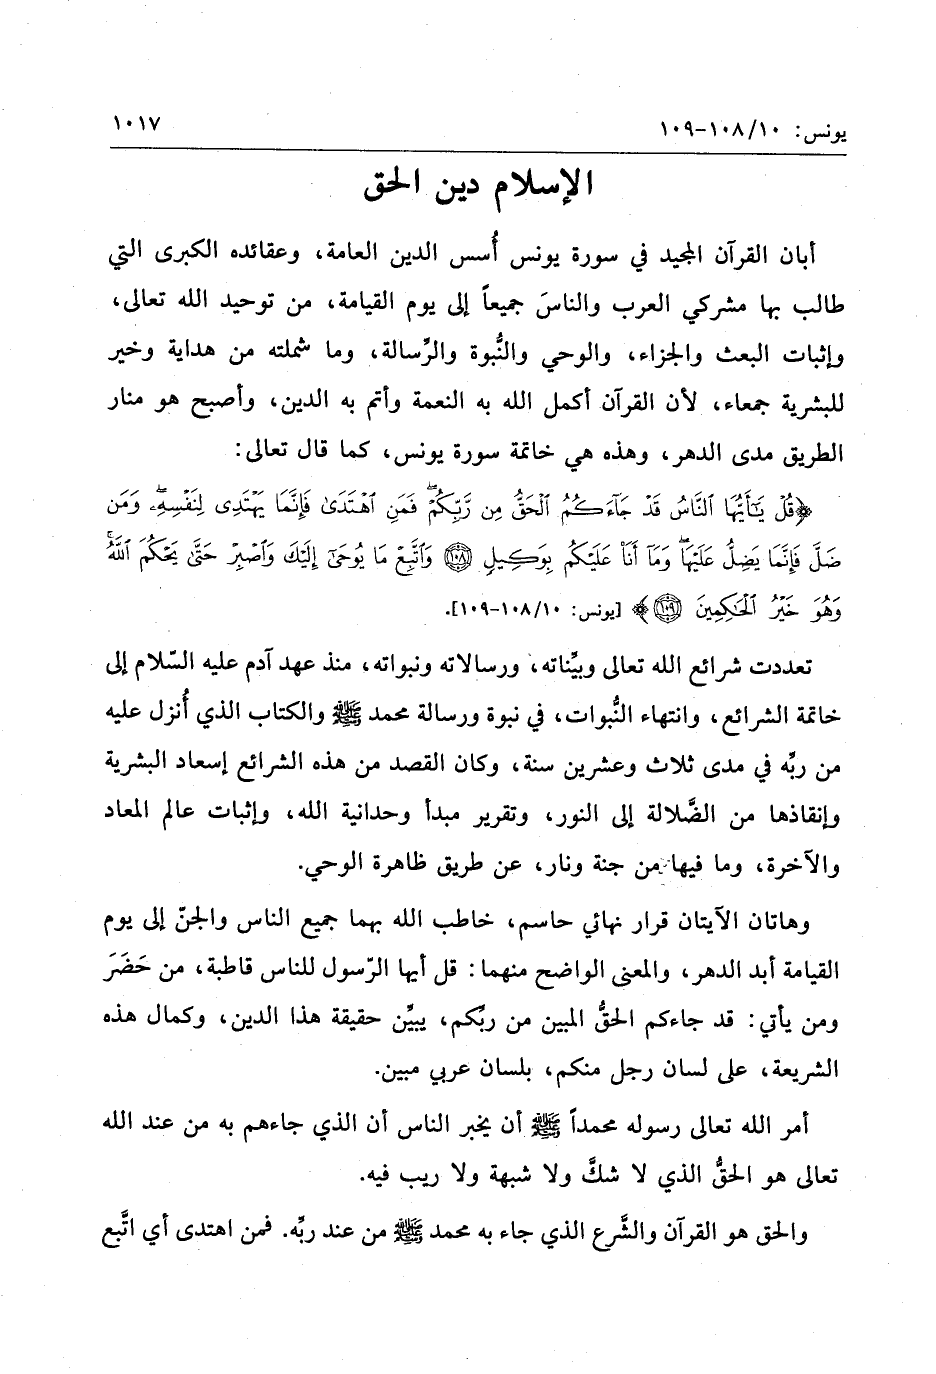 يونس: ١٠/ ١٠٨-١٠٩
١٠١٧
الإسلام دين الحق
أبان القرآن المجيد في سورة يونس أُسس الدين العامة، وعقائده الكبرى التي
طالب بها مشركي العرب والناسَ جميعاً إلى يوم القيامة، من توحيد الله تعالى،
وإثبات البعث والجزاء، والوحي والنُّبوة والرِّسالة، وما شملته من هداية وخير
للبشرية جمعاء، لأن القرآن أكمل الله به النعمة وأتم به الدين، وأصبح هو منار
الطريق مدى الدهر، وهذه هي خاتمة سورة يونس، كما قال تعالى:
﴿قُلْ يَٰٓأَيُّهَا ٱلنَّاسُ قَدْ جَآءَكُمُ ٱلْحَقُّ مِن رَّبِّكُمْۖ فَمَنِ ٱهْتَدَىٰ فَإِنَّمَا يَهْتَدِى لِنَفْسِهِۦۖ وَمَن
ضَلَّ فَإِنَّمَا يَضِلُّ عَلَيْهَاۖ وَمَآ أَنَا۠ عَلَيْكُم بِوَكِيلٍ ١٠٨ وَٱتَّبِعْ مَا يُوحَىٰٓ إِلَيْكَ وَٱصْبِرْ حَتَّىٰ يَحْكُمَ ٱللَّهُۚ
وَهُوَ خَيْرُ ٱلْحَٰكِمِينَ ١٠٩﴾ [يونس: ١٠/ ١٠٨-١٠٩].
تعددت شرائع الله تعالى وبيِّناته، ورسالاته ونبواته، منذ عهد آدم عليه السّلام إلى
خاتمة الشرائع، وانتهاء النُّبوات، في نبوة ورسالة محمد ﷺ والكتاب الذي أُنزل عليه
من ربِّه في مدى ثلاث وعشرين سنة، وكان القصد من هذه الشرائع إسعاد البشرية
وإنقاذها من الضَّلالة إلى النور، وتقرير مبدأ وحدانية الله، وإثبات عالم المعاد
والآخرة، وما فيها من جنة ونار، عن طريق ظاهرة الوحي.
وهاتان الآيتان قرار نهائي حاسم، خاطب الله بهما جميع الناس والجنّ إلى يوم
القيامة أبد الدهر، والمعنى الواضح منهما: قل أيها الرّسول للناس قاطبة، من حَضَرَ
ومن يأتي: قد جاءكم الحقُّ المبين من ربِّكم، يبيِّن حقيقة هذا الدين، وكمال هذه
الشريعة، على لسان رجل منكم، بلسان عربي مبين.
أمر الله تعالى رسوله محمداً ﷺ أن يخبر الناس أن الذي جاءهم به من عند الله
تعالى هو الحقُّ الذي لا شكَّ ولا شبهة ولا ريب فيه.
والحق هو القرآن والشَّرع الذي جاء به محمد ﷺ من عند ربِّه. فمن اهتدى أي اتَّبع